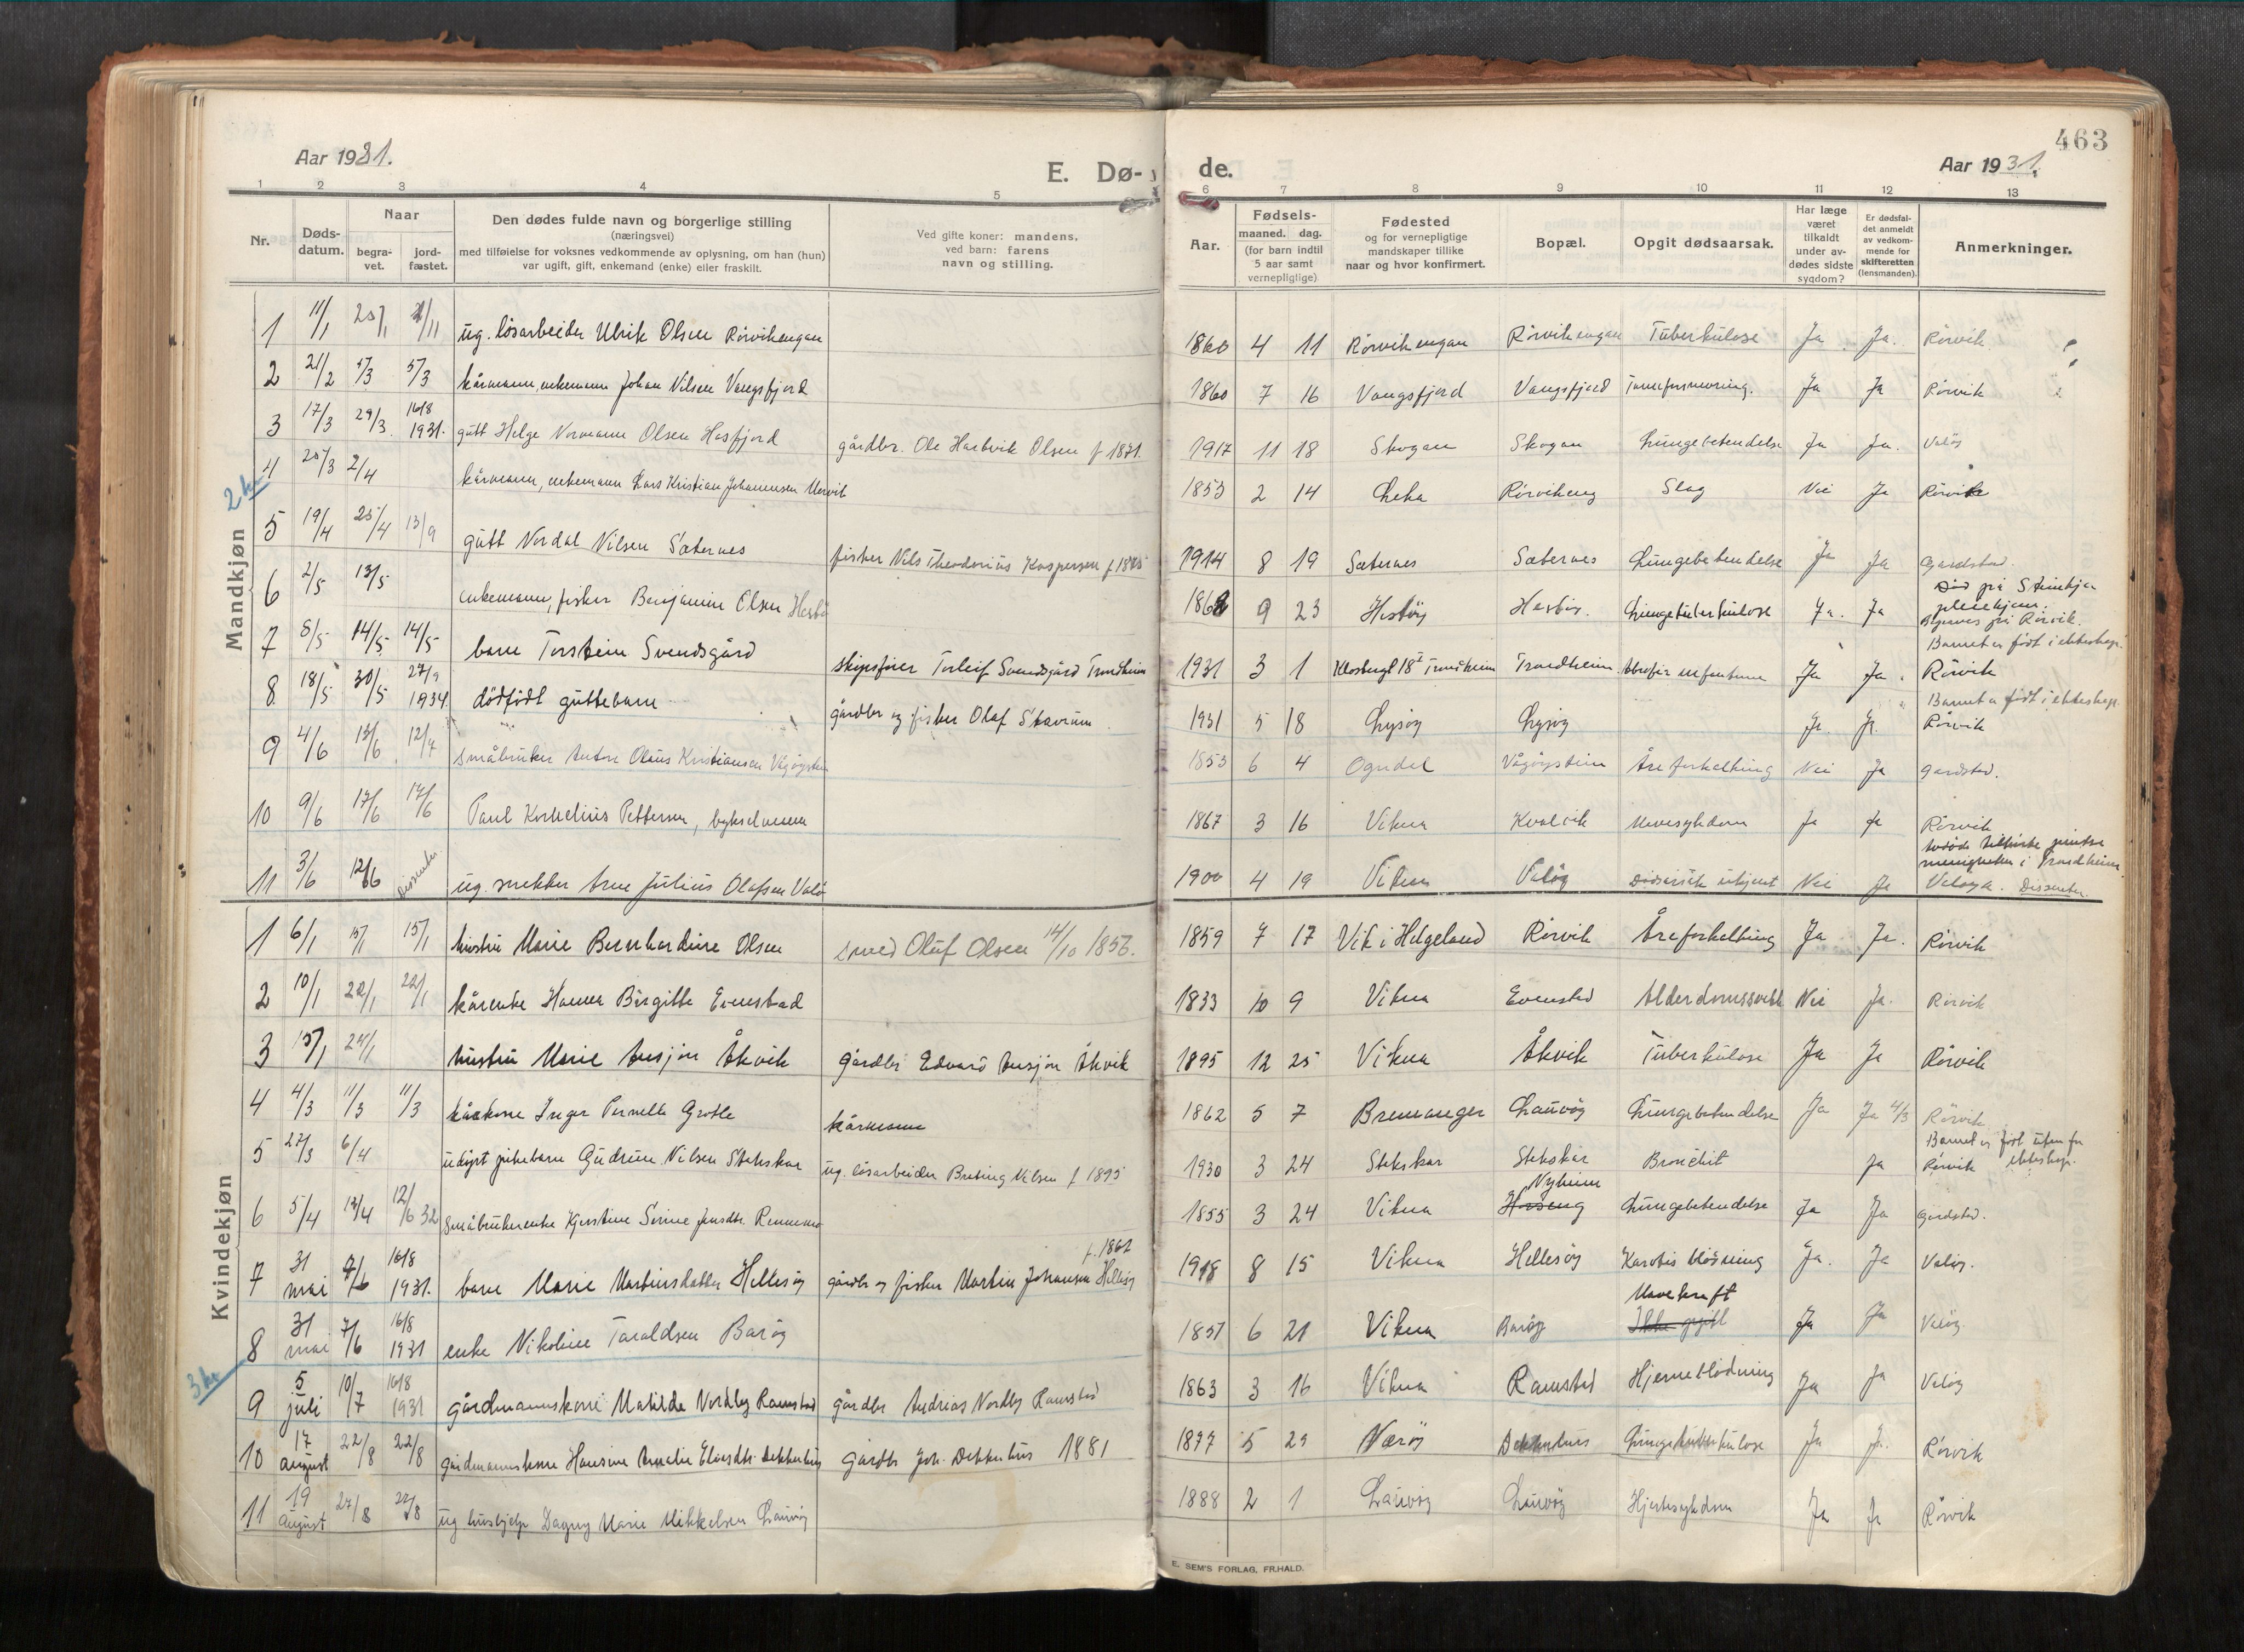 463
Aar 1931.
E. Dø-
de.
Aar 1931.
1 2 3 4 5
6 7 8 9 10 11 12 13
Nr.
Døds-
datum.
Naar
begra-
vet.
jord-
fæstet.
Den dødes fulde navn og borgerlige stilling
(næringsvei)
med tilføielse for voksnes vedkommende av oplysning, om han (hun)
var ugift, gift, enkemand (enke) eller fraskilt.
Ved gifte koner: mandens,
ved barn: farens
navn og stilling.
Aar.
Fødsels-
maaned. dag.
(for barn indtil
5 aar samt
vernepligtige)
Fødested
og for vernepligtige
mandskaper tillike
naar og hvor konfirmert.
Bopæl.
Opgit dødsaarsak.
Har læge
været
tilkaldt
under av-
dødes sidste
sygdom?
Er dødsfal-
det anmeldt
av vedkom-
mende for
skifteretten
(lensmanden).
Anmerkninger.
Mandkjøn
2 kr
1 11/1 20/1 ug. lösarbeider Ulrik Olsen Rörvikengan 1860 4 11 Rörvikengan Rörvikengan Tuberkulose Ja Ja. Rörvik
2 21/2 5/3 5/3 kårmann, enkemann Johan Nilsen Vangsfjord 1860 7 16 Vangsfjord Vangsfjord Ja Ja Rörvik
3 17/3 29/3 16/8 1931. gutt Helge Normann Olsen Hasfjord gårdbr. Ole Hartvik Olsen f 1871. 1917 11 18 Skogan Skogan Lungebetendelse Ja Ja. Valöy
4 25/3 2/4 kårmann, enkemann Lars Kristian Johannesen 1853 2 14 Leka Rörvikeng Slag Nei Ja Rörvik
5 19/4 25/4 13/9 gutt Nordal Nilsen Sæternes fisker Nils Theodorius Kaspersen f 1885 1914 8 19 Sæternes Sæternes Lungebetendelse Ja Ja Gardstad.
6 2/5 13/5 enkemann, fisker Benjamin Olsen Hestöy 1868 9 23 Hestöy Hestöy. Lungetuberkulose Ja. Ja Död på Steinkjer
pleiehjem.
Begraves på Rörvik.
7 5/5 14/5 14/5 barn Torstein Svendsgård skipsförer Torleif Svendsgård Trondheim 1931 3 1 Klostergt 18 I Trondheim Trondheim Atrofia infantum Ja Ja. Barnet er född i ekteskap.
Rörvik
8 18/5 30/5 27/9 1934 dödfödt guttebarn gårdbr og fisker Olaf Skavrum 1931 5 18 Lysöy Lysöy Ja. Ja. Barnet er född i ekteskap.
Rörvik
9 4/6 13/6 12/7 småbruker Anton Olaus Kristiansen Vågöystein 1853 6 4 Ogndal Vågöystein Åreforkalkning Nei Ja Gardstad.
10 9/6 17/6 17/6 Paul Kornelius Pettersen, bykselmann 1867 3 16 Vikna Kvalvik Mavesykdom Ja Ja Rörvik
11 3/6 12/6 Dissenter ug. snekker Arne Julius Olafsen Valöy 1900 4 19 Vikna Valöy Dödsårsak ukjent Nei Ja Avdöde tilhörte pinse
menigheten i Trondheim.
Valöya. Dissenter.
Kvindekjøn
3 kr
1 6/1 15/1 15/1 hustru Marie Bernhardine Olsen smed Oluf Olsen 14/10 1856. 1859 7 17 Vik i Helgeland Rörvik Åreforkalkning Ja Ja. Rörvik
2 10/1 22/1 22/1 kårenke Hanna Birgitte Evenstad 1833 10 9 Vikna Evenstad Alderdomssvekk Nei Ja. Rörvik
3 15/1 24/1 hustru Marie Ansjön Åkvik Gårdbr Edvard Ansjön Åkvik 1895 12 25 Vikna Åkvik Tuberkulose Ja Ja Rörvik
4 4/3 11/3 11/3 kårkone Inger Pernelle Grotle kårmann 1862 5 7 Bremanger Lauvöy Lungebetendelse Ja Ja 4/3 Rörvik
5 27/3 6/4 udöpt pikebarn Gudrun Nilsen Stekskar ug. lösarbeider Breting Nilsen f 1895 1930 3 24 Stekskar Stekskar Bronchit Ja Barnet er född utenfor
Rörvik ekteskap.
6 5/4 12/4 12/6 32 Småbrukerenke Kjerstine Sirine Jensdtr. Rennesö 1855 3 24 Vikna Horseng Nyheim Lungebetendelse Ja Ja Gardstad.
7 31 mai 7/6 16/8 1931. barn Marie Martinsdatter Hellesöy gårdbr og fisker Martin Johansen Hellesöy f. 1862 1918 8 15 Vikna Hellesöy Karotis blödning Ja. Ja Valöy.
8 31 mai 7/6 16/8 1931 enke Nikoline Taraldsen Baröy 1857 6 21 Vikna Baröy Mavekreft
Ikke opgitt Ja Ja Valöy
9 5 juli 10/7 16/8 1931 gårdmannskone Matilde Nordby Ramstad gårdbr Andreas Nordby Ramstad 1863 3 16 Vikna Ramstad Hjerneblödning Ja Ja Valöy
10 17 august 22/8 22/8 gårdmannskone Hansine Amalie Eliasdtr. Dekkerhus gårdbr Joh. Dekkerhus 1881 1877 5 29 Næröy Dekkerhus Lungetuberkulose Ja Ja. Rörvik
11 19 august 27/8 27/8 ug hushjelp Dagny Marie Mikkelsen Lauvöy 1888 2 1 Lauvöy Lauvöy Hjertesykdom Ja Ja Rörvik
E. SEM'S FORLAG, FR.HALD.